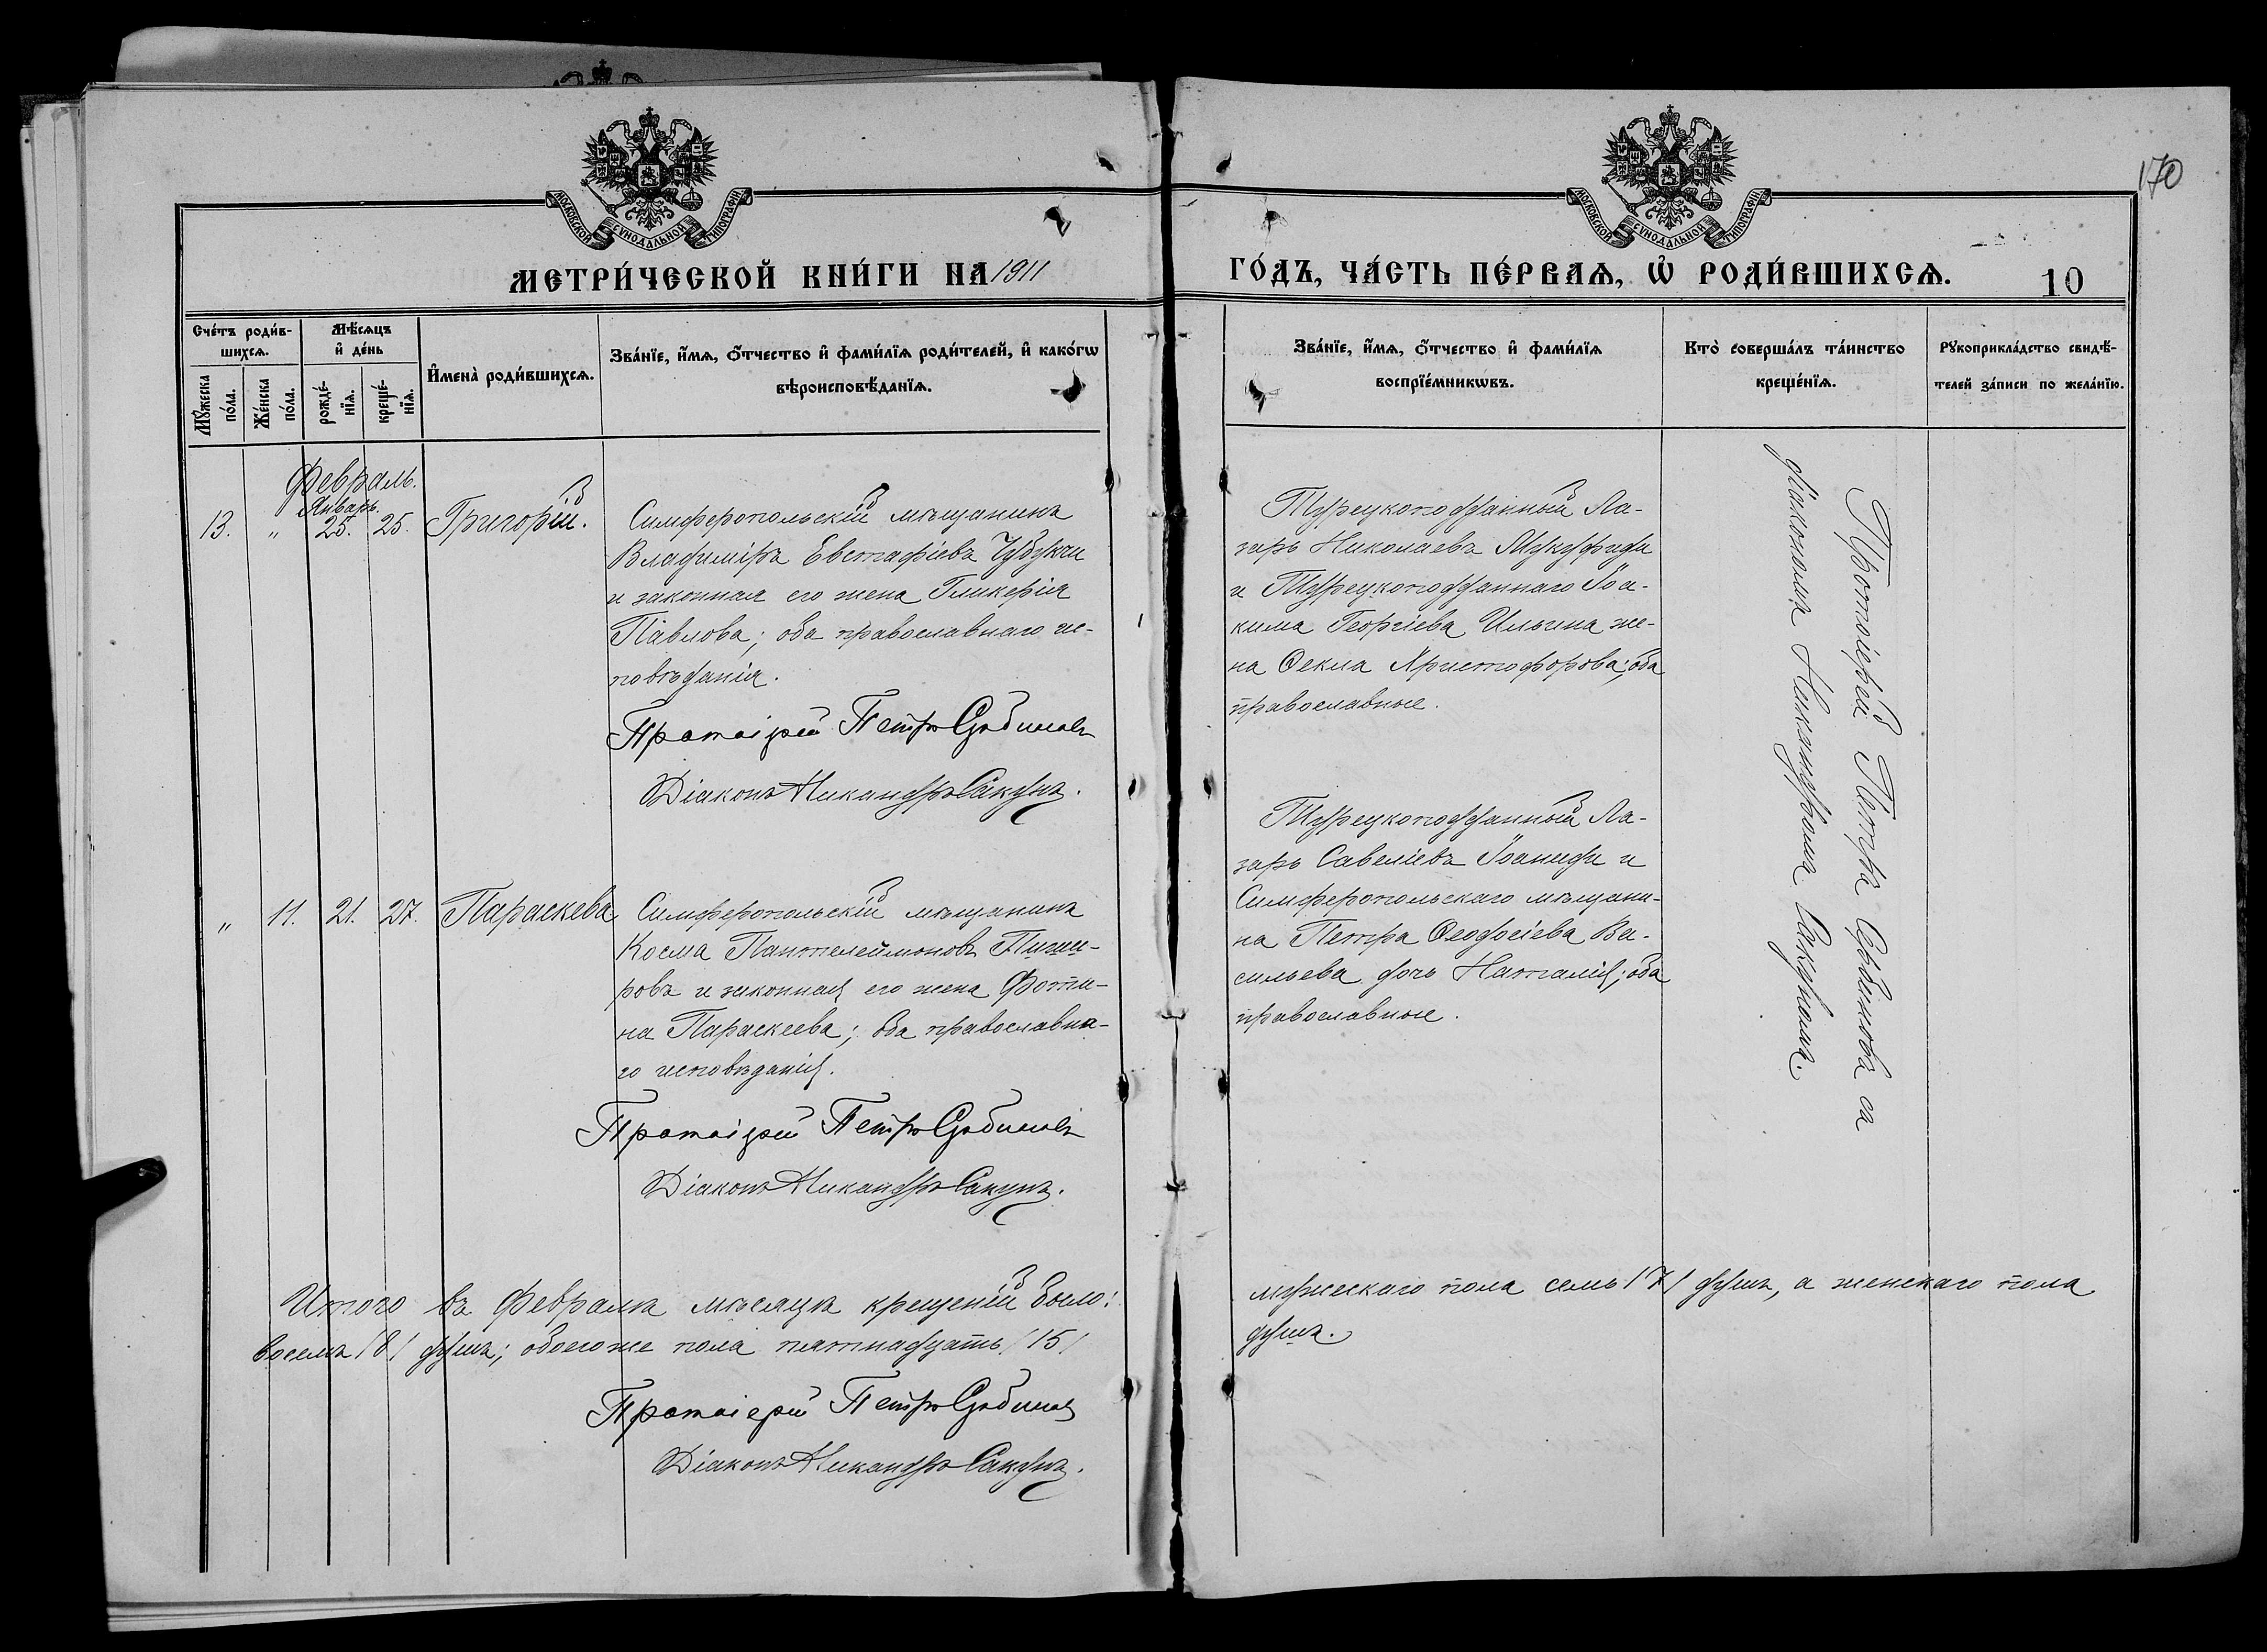 170
МОСКОВСКОЙ СУНОДАЛЬНОЙ ТИПОГРАФІИ
МОСКОВСКОЙ СУНОДАЛЬНОЙ ТИПОГРАФІИ
МЕТРИ́ЧЕСКОЙ КНИ́ГИ НА 1911
ГО́ДЪ, ЧА́СТЬ ПЕ́РВАѦ, Ѡ҆ РОДИ́ВШИХСѦ.
10
Сче́тъ роди́в-
шихсѧ.
Мꙋ́жеска
по́ла.
Же́нска
по́ла.
Мѣ́сѧцъ
и҆ де́нь
рожде́-
нїѧ.
креще́-
нїѧ.
И҆мена̀ роди́вшихсѧ.
Зва́нїе, и҆́мѧ, ѻ҆́тчество и҆ фами́лїѧ роди́телей, и҆ како́гѡ
вѣроисповѣ́данїѧ.
Зва́нїе, и҆́мѧ, ѻ҆́тчество и҆ фами́лїѧ
воспрїе́мникѡвъ.
Кто̀ соверша́лъ та́инство
креще́нїѧ.
Рꙋкоприкла́дство свидѣ́-
телей за́писи по жела́нїю.
Февраль.
Январь.
13. „ 25. 25. Григорій.
Симферопольскій мѣщанинъ
Владиміръ Евстафіевъ Чубукчи
и законная его жена Гликерія
Павлова; оба православнаго ис-
повѣданія.
Протоіерей Петръ Сербиновъ
Діаконъ Никандръ Сакунъ.
Турецкоподданный Ла-
зарь Николаевъ
и Турецкоподданнаго Іоа-
кима Георгіева Ильина же-
на Ѳекла Христофорова; оба
православные.
Протоіерей Петръ Сербиновъ съ
діакономъ Никандромъ Сакуномъ.
„ 11. 21. 27. Параскева
Симферопольскій мѣщанинъ
Косма Пантелеймоновъ Пиши-
ровъ и законная его жена Фоти-
на Параскеева; оба православна-
го исповѣданія.
Протоіерей Петръ Сербиновъ
Діаконъ Никандръ Сакунъ.
Турецкоподданный Ла-
зарь Савеліевъ Іоаниди и
Симферопольскаго мѣщани-
на Петра Ѳеодосіева Ва-
сильева дочь Наталія; оба
православные.
Итого въ Февралѣ мѣсяцѣ крещеній было: мужескаго пола семь /7/ душъ, а женскаго пола
восемъ /8/ душъ; обоего же пола пятнадцать /15/ душъ.
Протоіерей Петръ Сербиновъ
Діаконъ Никандръ Сакунъ.